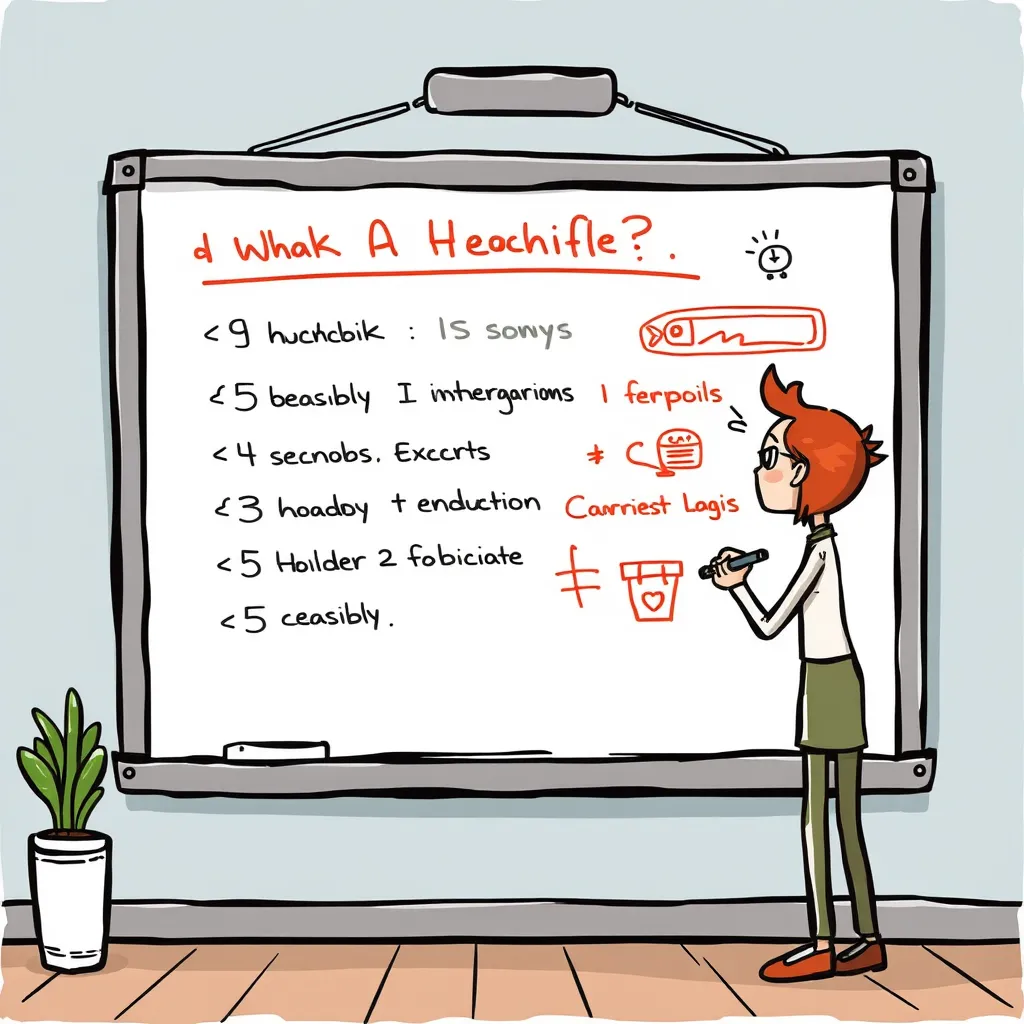 d Whak A Heochifle?.
< 9 huckcbik : IS sonys
< 5 beasibly I imthergarioms I ferpoils
< 4 secnobs. Exccrts
< 3 hoadoy + enduction Canrriest Lagis
< 5 Hoilder 2 fobiciate
< 5 ceasibly.